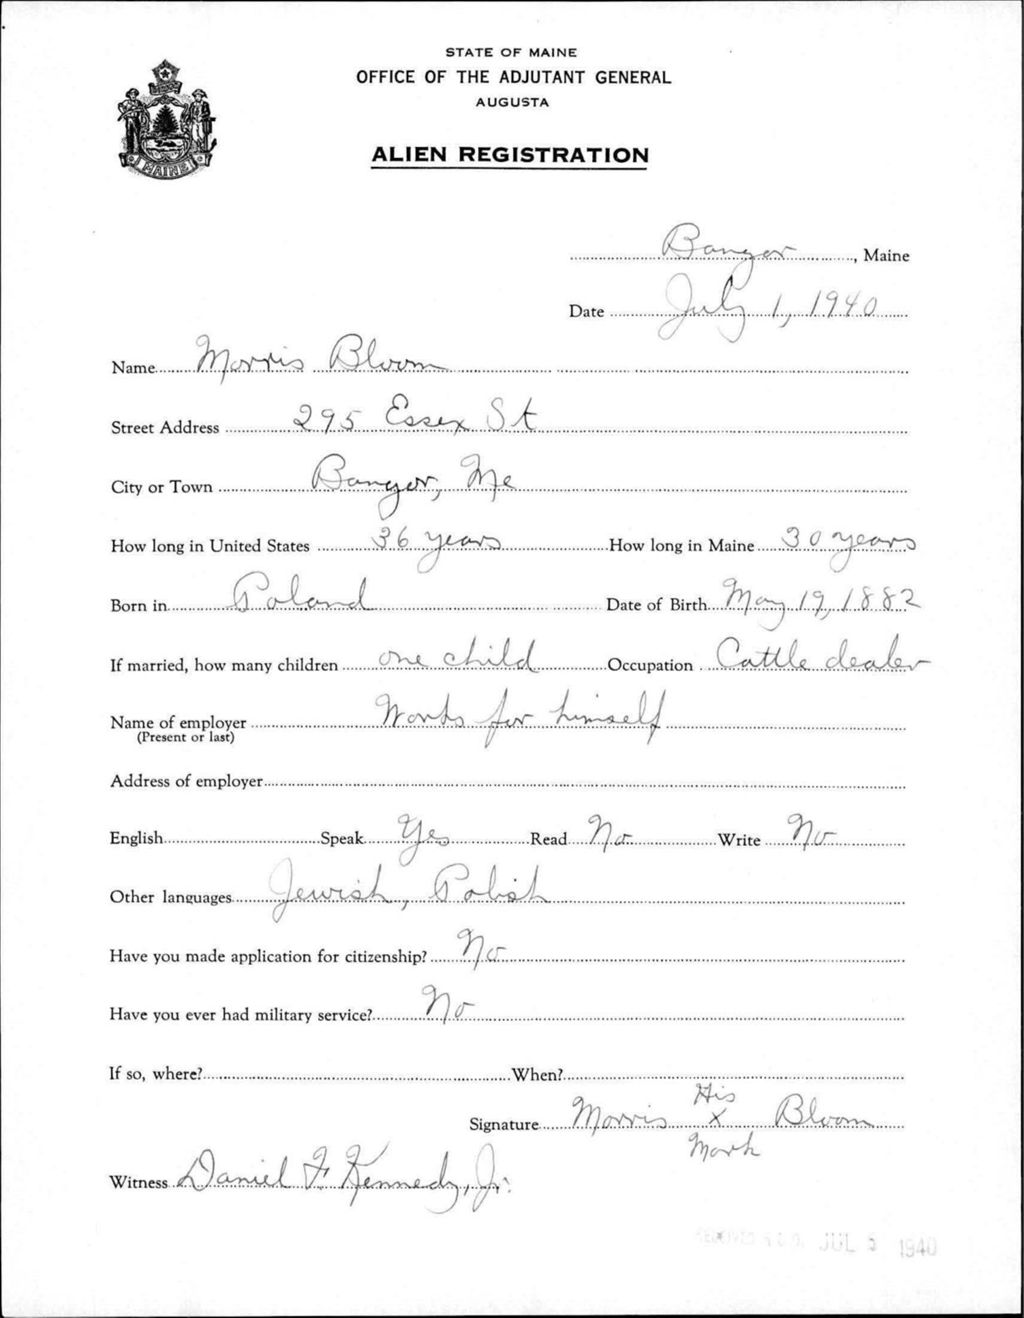 STATE OF MAINE
OFFICE OF THE ADJUTANT GENERAL
AUGUSTA
ALIEN REGISTRATION
MAINE
Bangor, Maine
Date July 1, 1940
Name Morris Bloom
Street Address 295 Essex St
City or Town Bangor, Me
How long in United States 36 years How long in Maine 30 years
Born in Poland Date of Birth May 19, 1882
If married, how many children one child Occupation Cattle dealer
Name of employer Works for himself
(Present or last)
Address of employer
English Speak Yes Read No Write No
Other languages Jewish, Polish
Have you made application for citizenship? No
Have you ever had military service? No
If so, where? When?
His
Signature Morris X Bloom
Mark
Witness Daniel F Kennedy, Jr.
JUL 5 1940